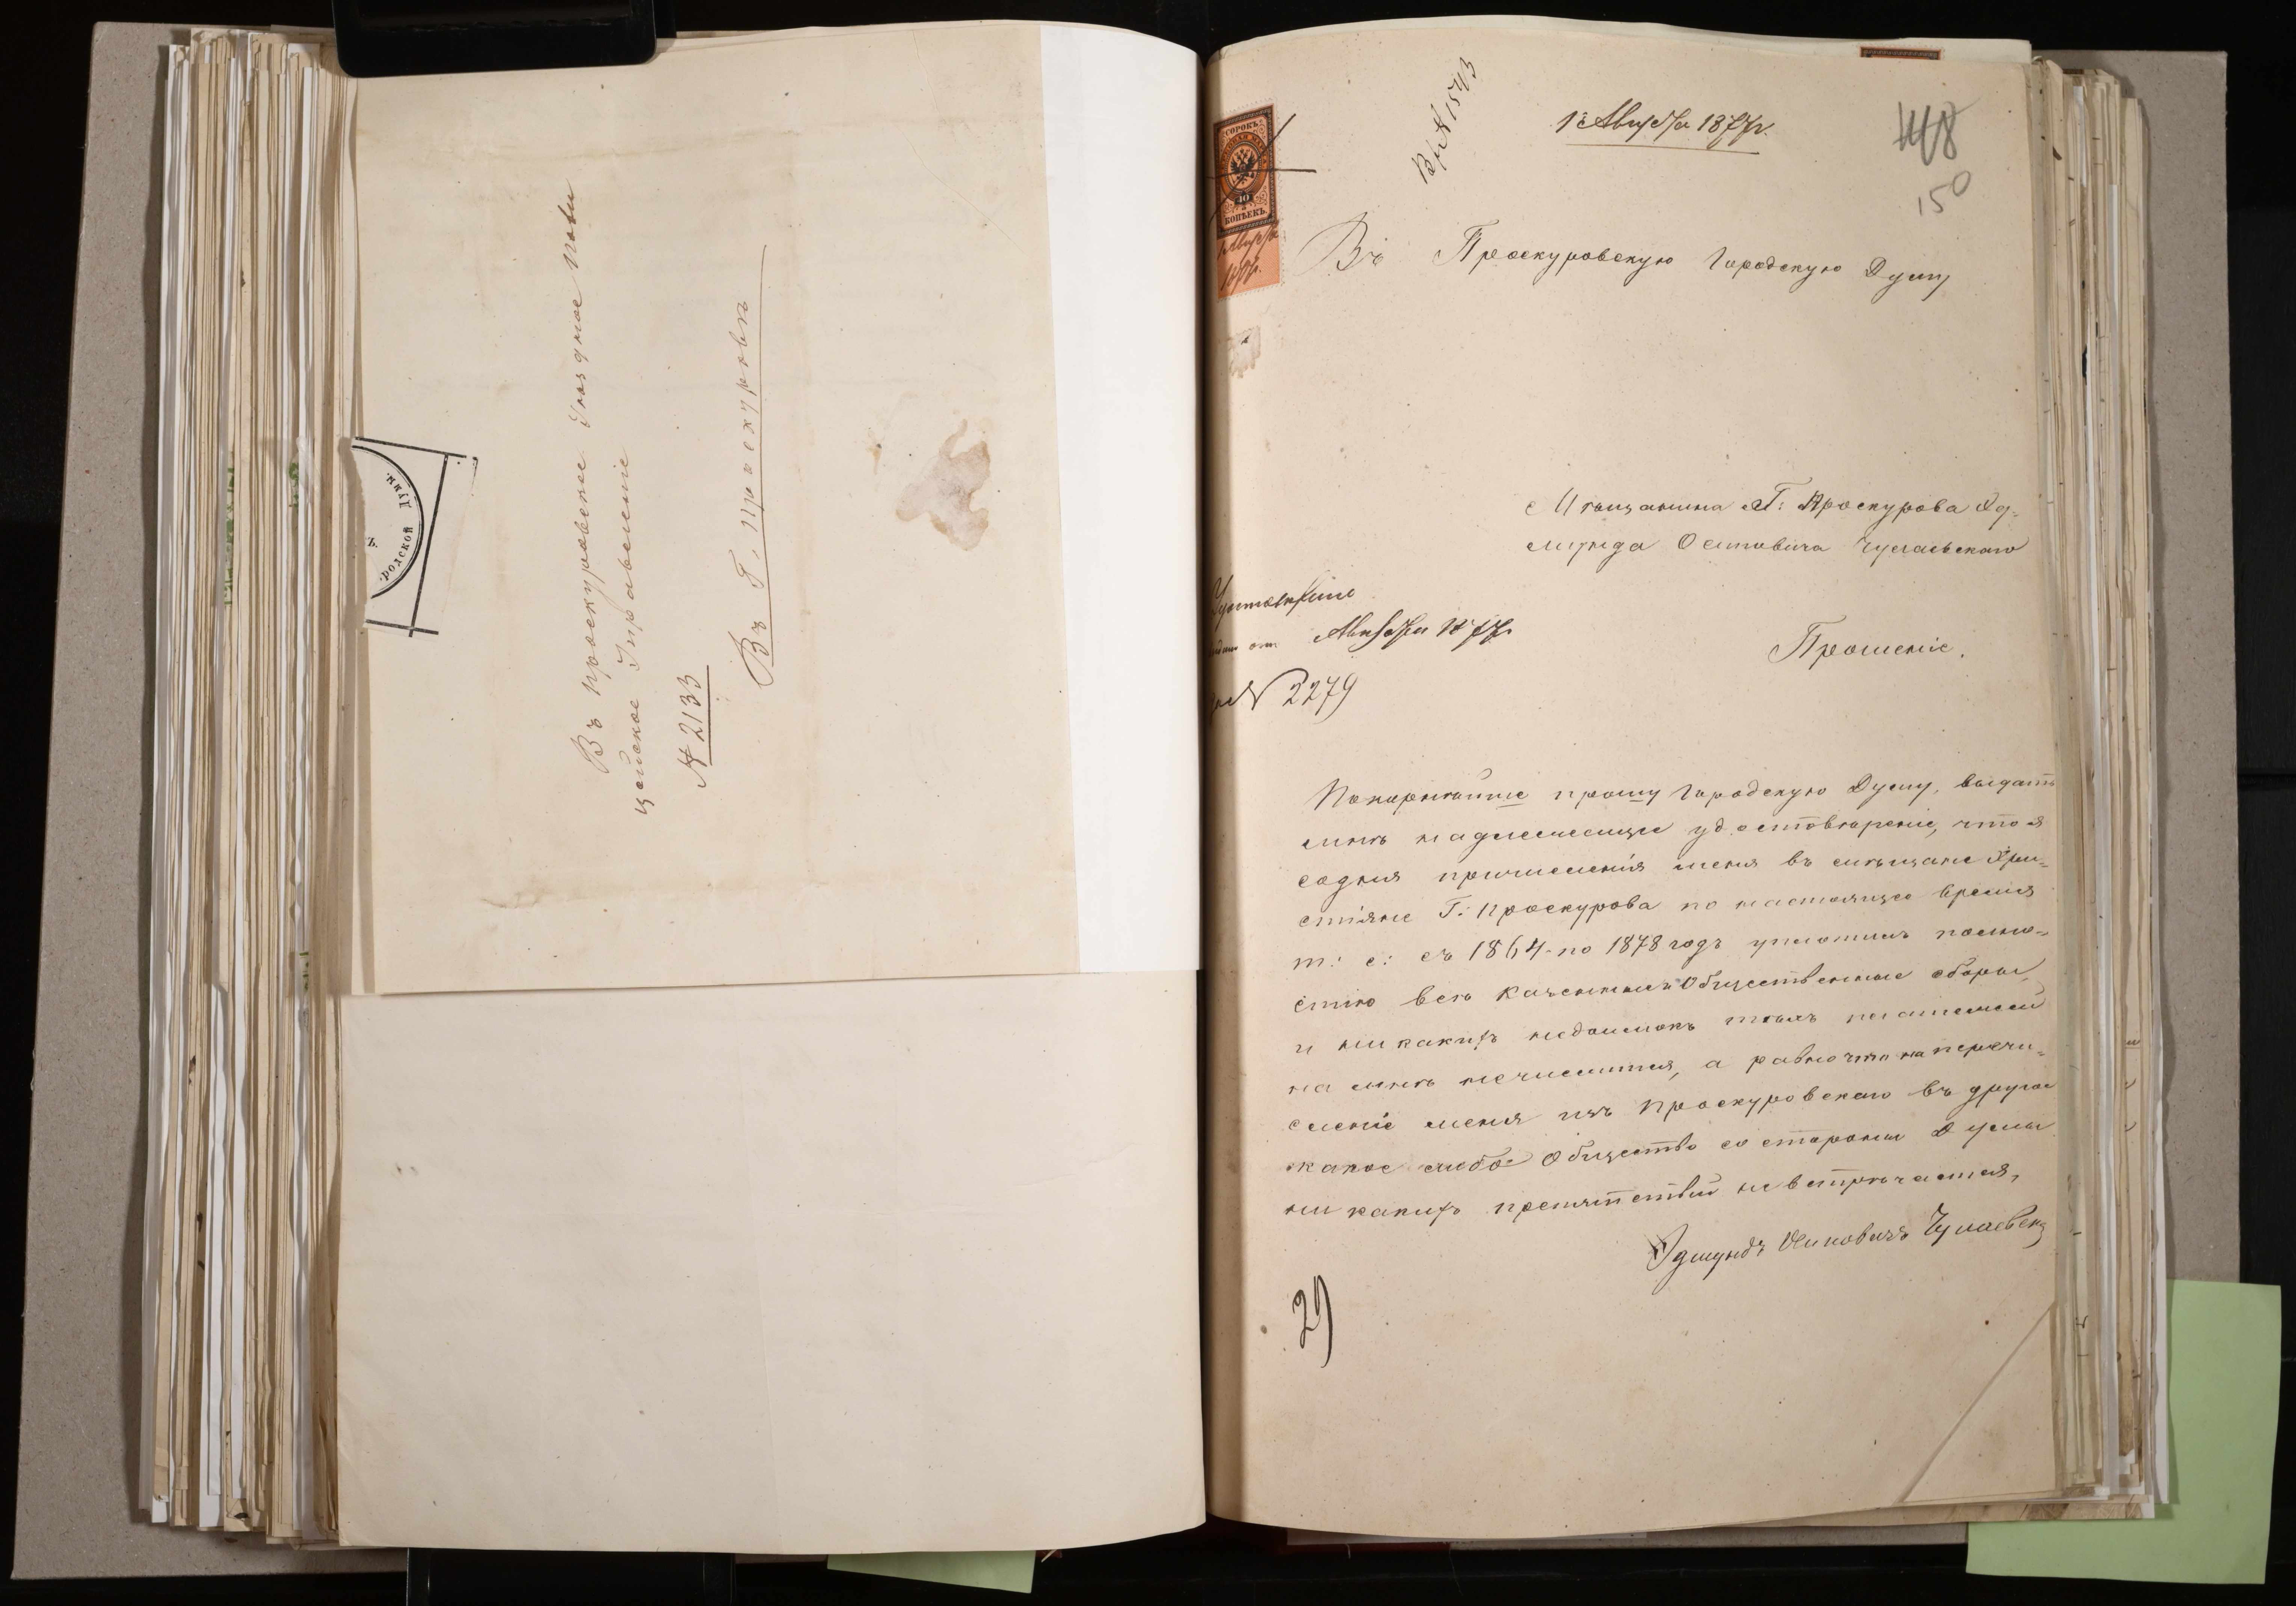 Въ Проскуровское Уѣздное Поли
цейское Управленіе
№ 2133
Въ Г. Проскуровъ
родской Думы.
Вх № 1543
1 Августа 1877 г.
148
150
СОРОКЪ
40
КОПѢЕКЪ
1 Августа
1877 г.
Въ Проскуровскую Городскую Думу
Мѣщанина Г: Проскурова Эд-
мунда Осиповича Чулаевскаго
Августа 1877 г.
№ 2279
Прошеніе.
Покорнѣйше прошу Городскую Думу, выдать
мнѣ надлежащее удостовѣреніе, что я
содня причисленія меня въ мѣщане Хри=
стіяне Г: Проскурова по настоящее время
т: е: съ 1864 по 1878 годъ уплотилъ полно=
стію всѣ казенныя и Общественные сборы,
и ни какихъ недоимокъ тѣхъ платежей
на мнѣ нечислится, а равно что на перечи=
сленіе меня изъ Проскуровскаго въ другое
какое либо Общество со стороны Думы
ни какихъ препятствій невстрѣчается,
Эдмундъ Осиповичъ Чулаевск
29